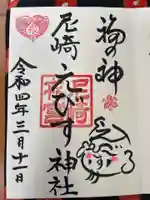 福の神
尼崎えびす神社
令和四年三月十一日